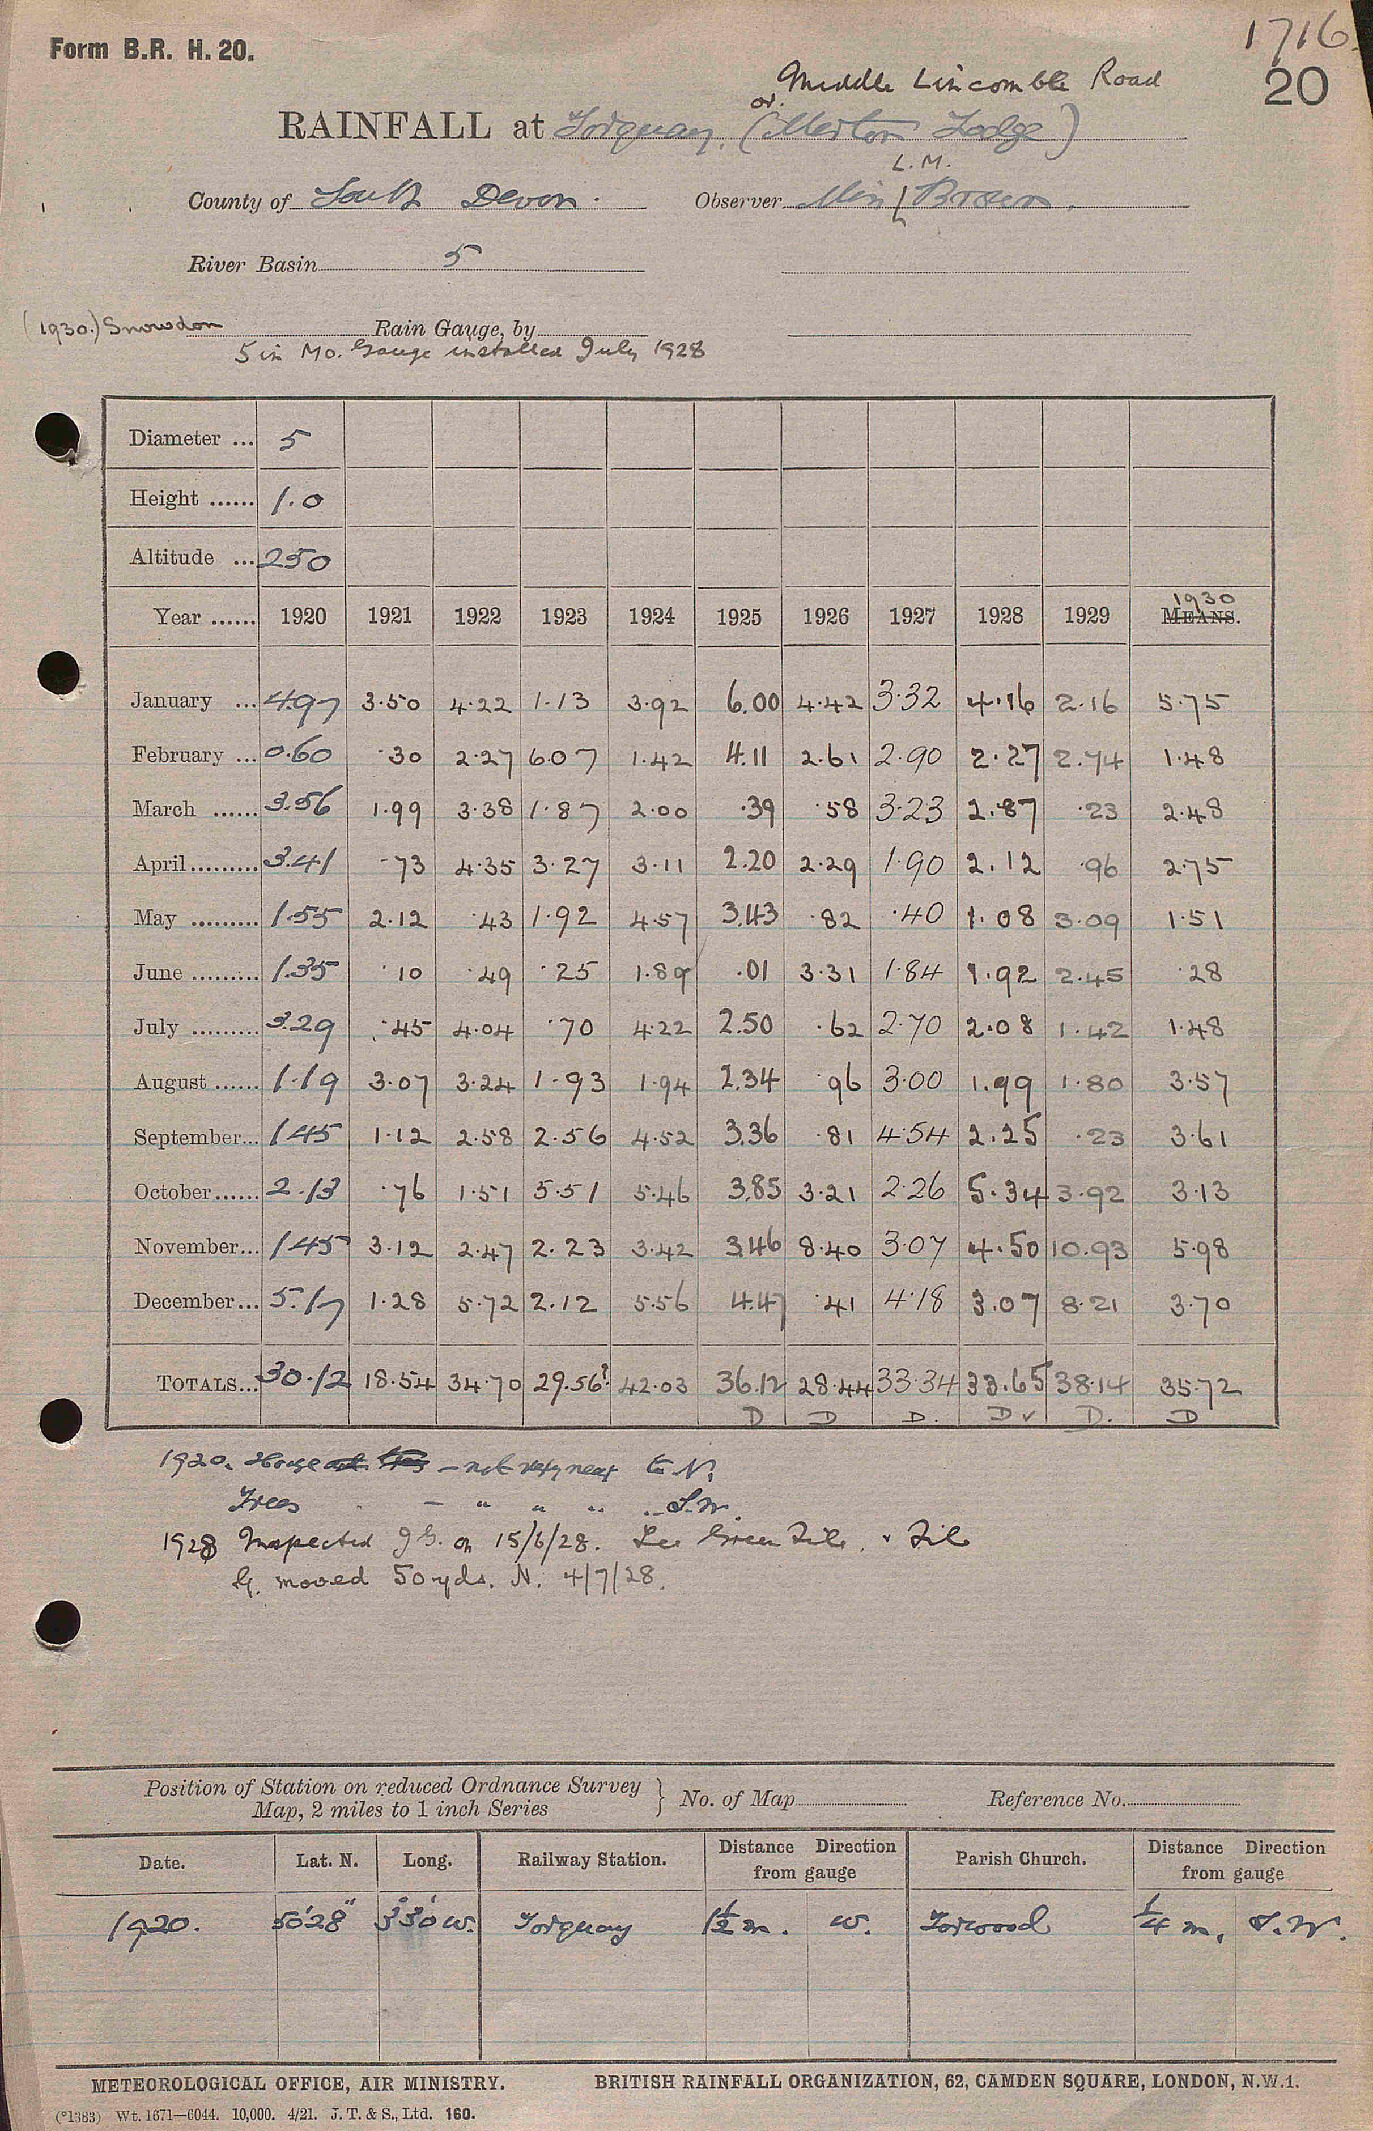 Form B.R. H. 20.
1716
20
Middle Lincombe Road
or
RAINFALL at Torquay, (Merton Lodge)
L. M.
County of South Devon. Observer Miss Brown.
River Basin 5
(1930.) Snowdon Rain Gauge, by
5 in Mo. Gauge installed July 1928
Diameter ... 5
Height ...... 1.0
Altitude ... 250
1930
Year ...... 1920 1921 1922 1923 1924 1925 1926 1927 1928 1929 MEANS.
January ... 4.97 3.50 4.22 1.13 3.92 6.00 4.42 3.32 4.16 2.16 5.75
February ... 0.60 .30 2.27 6.07 1.42 4.11 2.61 2.90 2.27 2.74 1.48
March ...... 3.56 1.99 3.38 1.87 2.00 .39 .58 3.23 2.87 .23 2.48
April......... 3.41 .73 4.35 3.27 3.11 2.20 2.29 1.90 2.12 .96 2.75
May ......... 1.55 2.12 .43 1.92 4.57 3.43 .82 .40 1.08 3.09 1.51
June ......... 1.35 .10 .49 .25 1.89 .01 3.31 1.84 1.92 2.45 .28
July ......... 3.29 .45 4.04 .70 4.22 2.50 .62 2.70 2.08 1.42 1.48
August ...... 1.19 3.07 3.24 1.93 1.94 2.34 .96 3.00 1.99 1.80 3.57
September... 1.45 1.12 2.58 2.56 4.52 3.36 .81 4.54 2.25 .23 3.61
October...... 2.13 .76 1.51 5.51 5.46 3.85 3.21 2.26 5.34 3.92 3.13
November... 1.45 3.12 2.47 2.23 3.42 3.46 8.40 3.07 4.50 10.93 5.98
December... 5.17 1.28 5.72 2.12 5.56 4.47 .41 4.18 3.07 8.21 3.70
TOTALS... 30.12 18.54 34.70 29.56? 42.03 36.12 28.44 33.34 33.65 38.14 35.72
D D D. D v D. D
1920. House - not very near to N.
Trees - " " " .. S.W.
1928 Inspected J.G. on 15/6/28. See Green File. v File
G. moved 50 yds. N. 4/7/28.
Position of Station on reduced Ordnance Survey
Map, 2 miles to 1 inch Series } No. of Map Reference No.
Date. Lat. N. Long. Railway Station. Distance Direction from gauge Parish Church. Distance Direction from gauge
1920. 50°28' 3°30'W. Torquay 1½ m. W. Torwood ¼ m. S.W.
METEOROLOGICAL OFFICE, AIR MINISTRY. BRITISH RAINFALL ORGANIZATION, 62, CAMDEN SQUARE, LONDON, N.W.1.
(*1383) Wt. 1671—6044. 10,000. 4/21. J. T. & S., Ltd. 160.